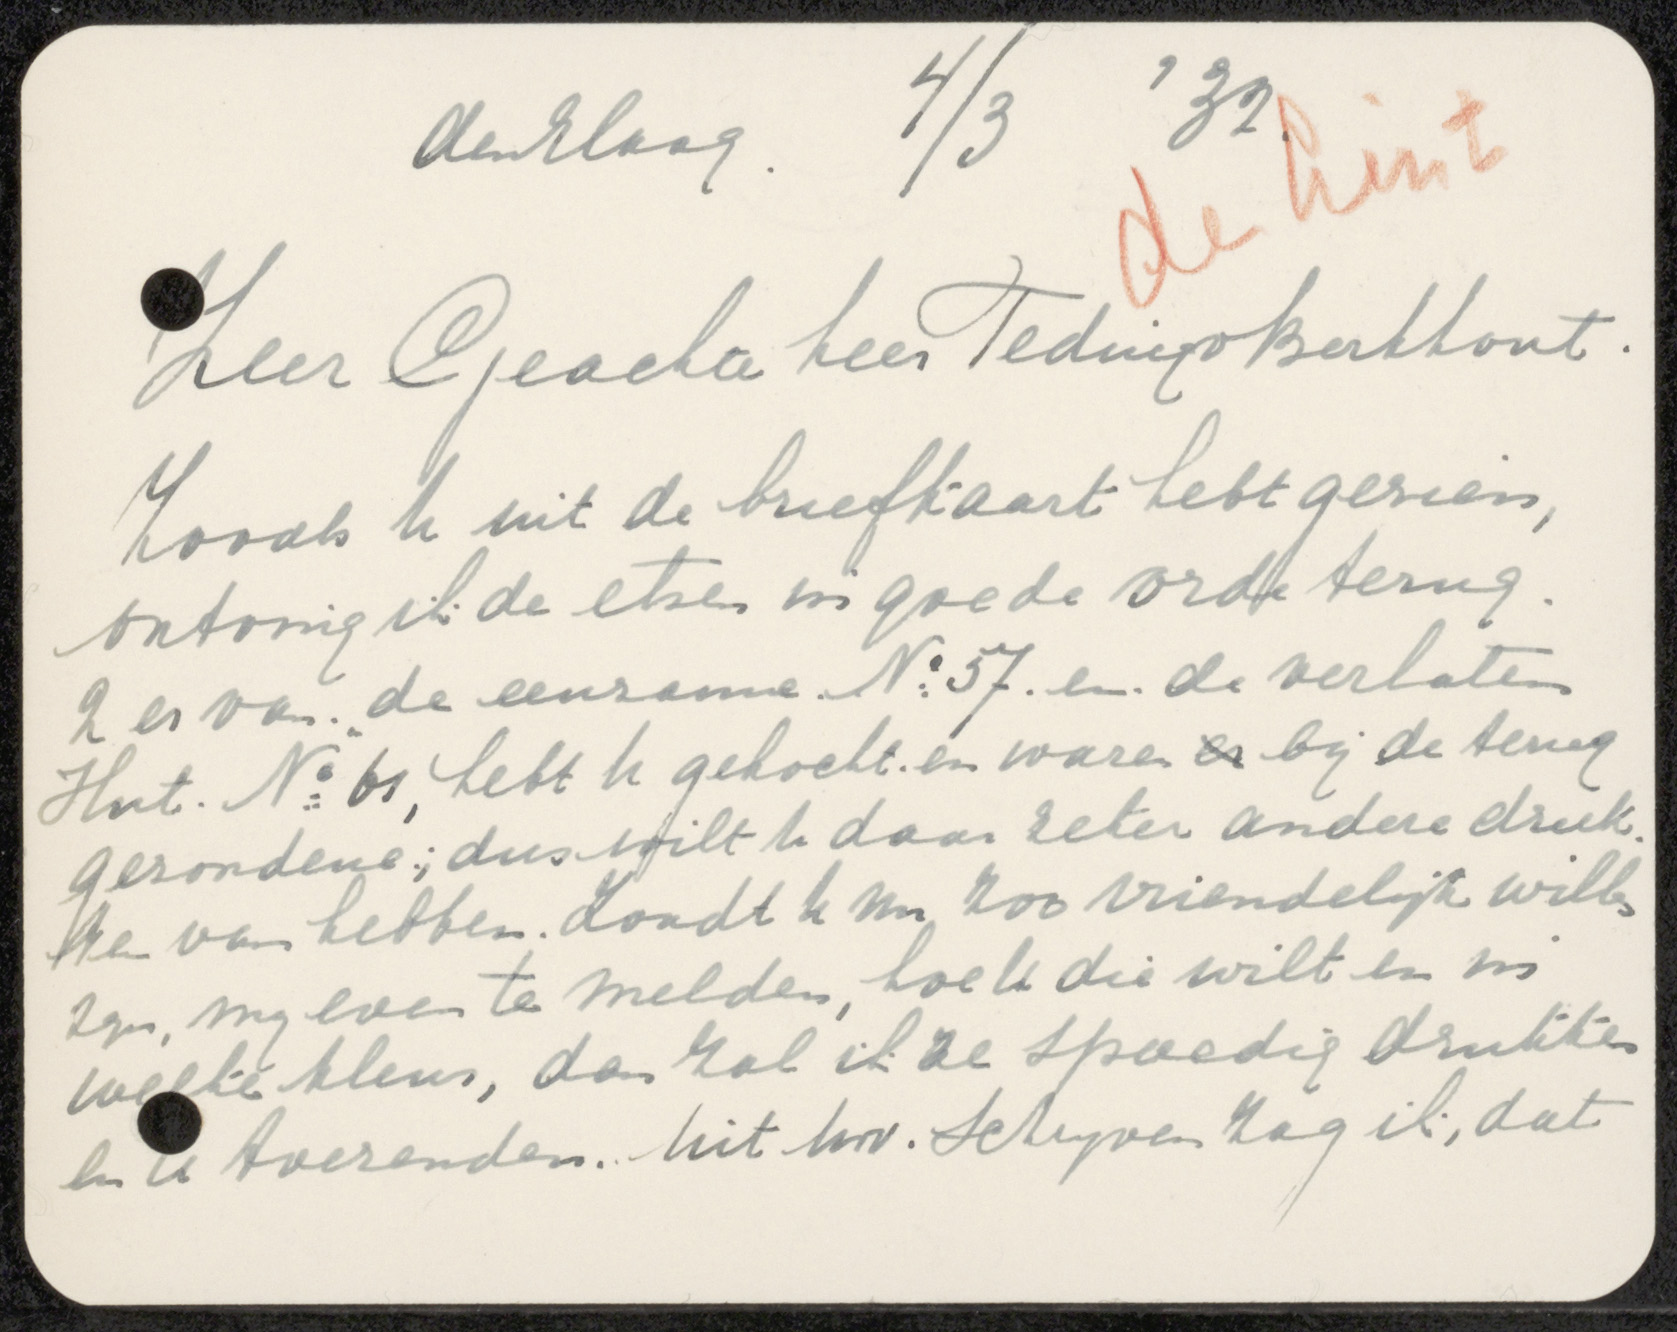 den Haag. 4/3 '32.
de Hint
Zeer Geachte heer Teding v Berkhout.
Zooals U uit de briefkaart hebt gezien,
ontving ik de etsen in goede orde terug.
2 er van. „de eenzame. No: 57. en. de verlaten
Hut. No: 61, hebt U gekocht. en waren er bij de terug
gezondene; dus wilt U daar zeker andere druk-
ken van hebben. Zoudt U nu zoo vriendelijk willen
zyn, my even te melden, hoe U die wilt en in
welke kleur, dan zal ik ze spoedig drukken
en U toezenden. Uit Uw. schryven zag ik, dat